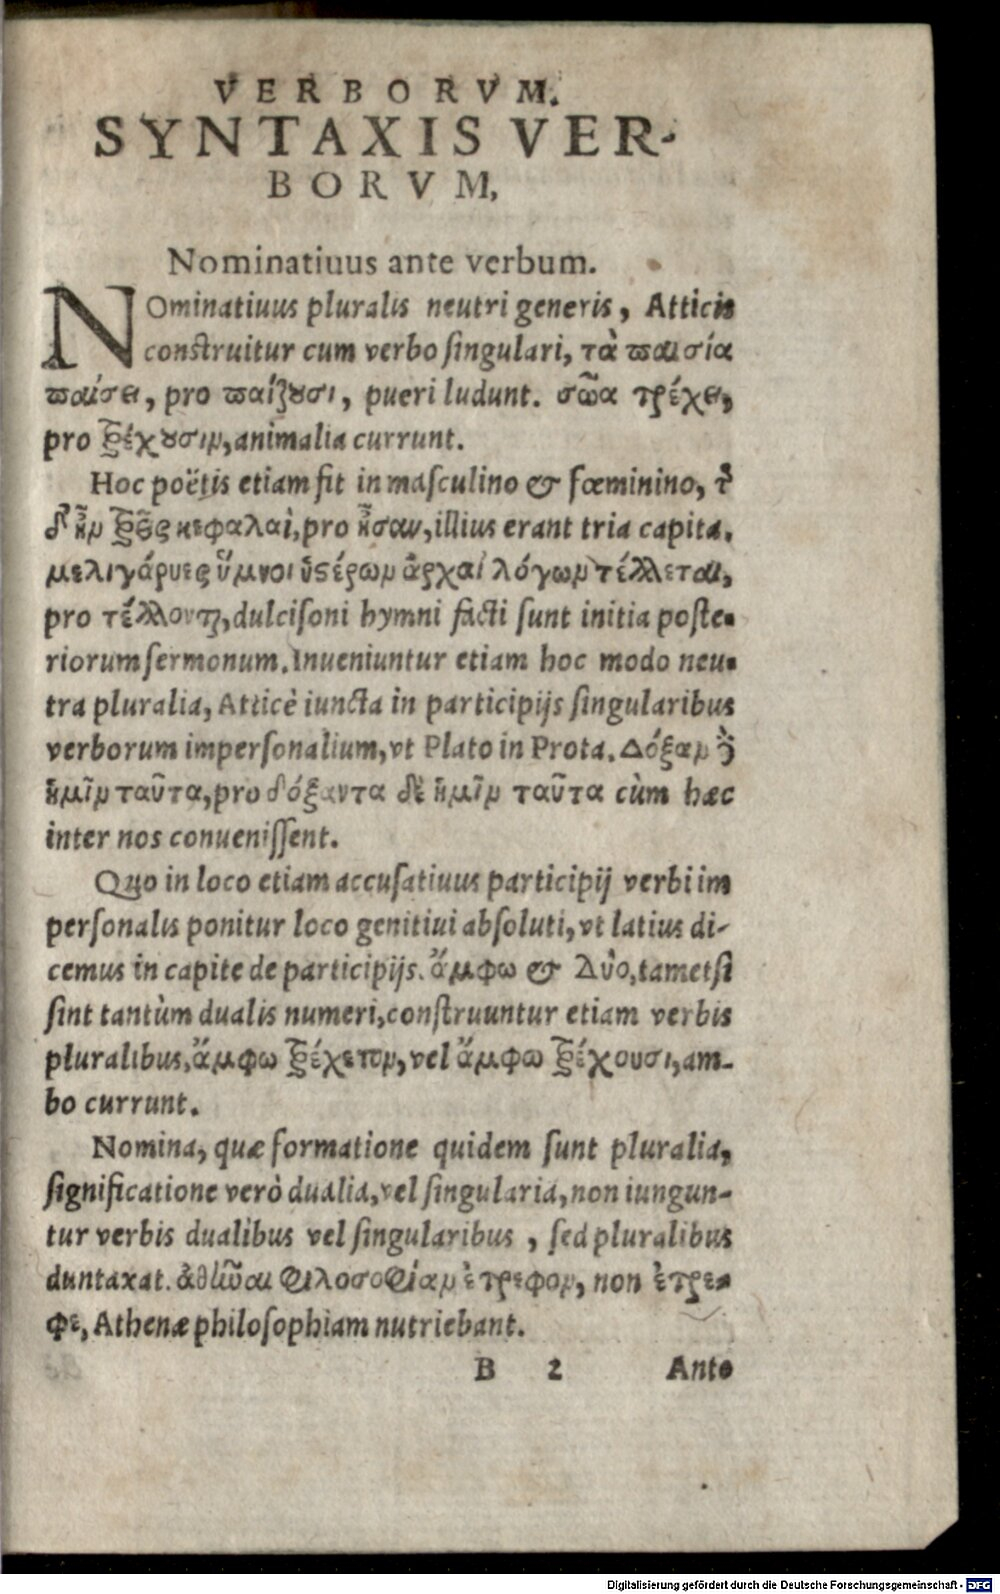 VERBORVM.
SYNTAXIS VER-
BORVM,
Nominatiuus ante verbum.
NOminatiuus pluralis neutri generis, Atticis
construitur cum verbo singulari, τὰ παισία
παίσει, pro παίζουσι, pueri ludunt. σῶα τρέχει,
pro τρέχουσιν, animalia currunt.
Hoc poëtis etiam fit in masculino & fœminino, τ
δ' ἦν τρεῖς κεφαλαὶ, pro ἦσαν, illius erant tria capita.
μελιγάρυες ὕμνοι ὑστέρων ἀρχαὶ λόγων τέλλεται,
pro τέλλονται, dulcisoni hymni facti sunt initia poste-
riorum sermonum. Inueniuntur etiam hoc modo neu-
tra pluralia, Atticè iuncta in participijs singularibus
verborum impersonalium, vt Plato in Prota. Δόξαν δὲ
ἡμῖν ταῦτα, pro δόξαντα δὲ ἡμῖν ταῦτα cùm hæc
inter nos conuenissent.
Quo in loco etiam accusatiuus participij verbi im
personalis ponitur loco genitiui absoluti, vt latius di-
cemus in capite de participijs. ἄμφω & Δύο, tametsi
sint tantùm dualis numeri, construuntur etiam verbis
pluralibus, ἄμφω τρέχετον, vel ἄμφω τρέχουσι, am-
bo currunt.
Nomina, quæ formatione quidem sunt pluralia,
significatione verò dualia, vel singularia, non iungun-
tur verbis dualibus vel singularibus, sed pluralibus
duntaxat. ἀθῆναι φιλοσοφίαν ἐτρεφον, non ἐτρε-
φε, Athenæ philosophiam nutriebant.
B 2 Ante
Digitalisierung gefördert durch die Deutsche Forschungsgemeinschaft - DFG